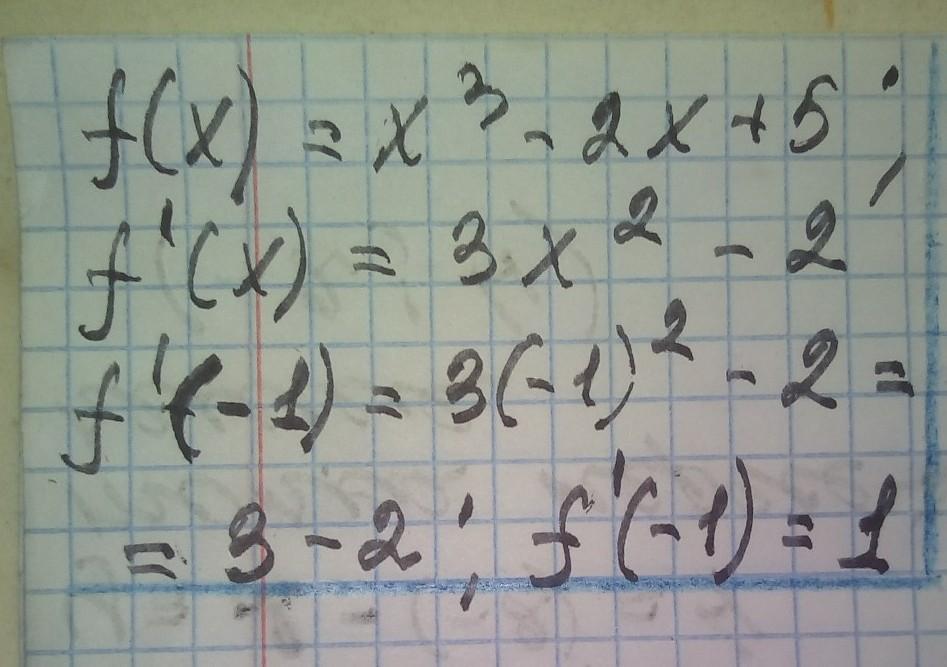 f(x) = x³ - 2x + 5;
f'(x) = 3x² - 2
f'(-1) = 3(-1)² - 2 =
= 3 - 2; f'(-1) = 1